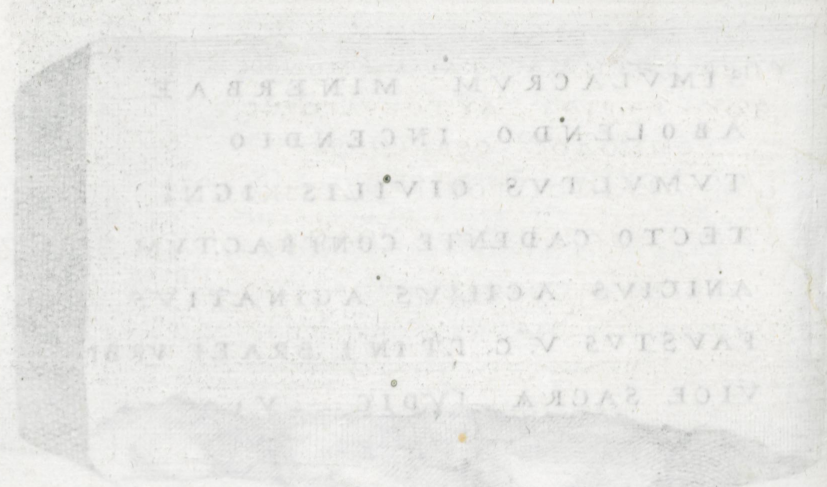 IMVLACRVM MINERBAE
ABOLENDO INCENDIO
TVMVLTVS CIVILIS IGNI
TECTO CADENTE CONFRACTVM
ANICIVS ACILIVS AGINATIVS
FAVSTVS V. C. ET INL PRAEF VRBI
VICE SACRA IVDIC